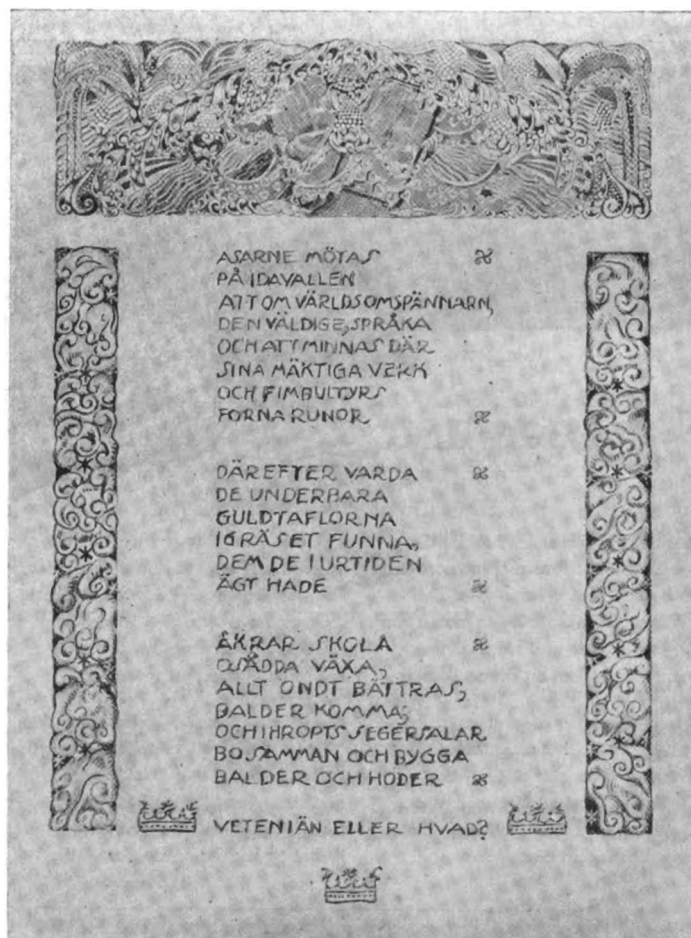 ASARNE MÖTAS
PÅ IDAVALLEN
ATT OM VÄRLDSOMSPÄNNARN,
DEN VÄLDIGE, SPRÅKA
OCH ATT MINNAS DÄR
SINA MÄKTIGA VERK
OCH FIMBULTYRS
FORNA RUNOR
DÄREFTER VARDA
DE UNDERBARA
GULDTAFLORNA
I GRÄSET FUNNA,
DEM DE I URTIDEN
ÄGT HADE
ÅKRAR SKOLA
OSÅDDA VÄXA,
ALLT ONDT BÄTTRAS,
BALDER KOMMA;
OCH I HROPTS SEGERSALAR
BO SAMMAN OCH BYGGA
BALDER OCH HODER
VETEN I ÄN ELLER HVAD?